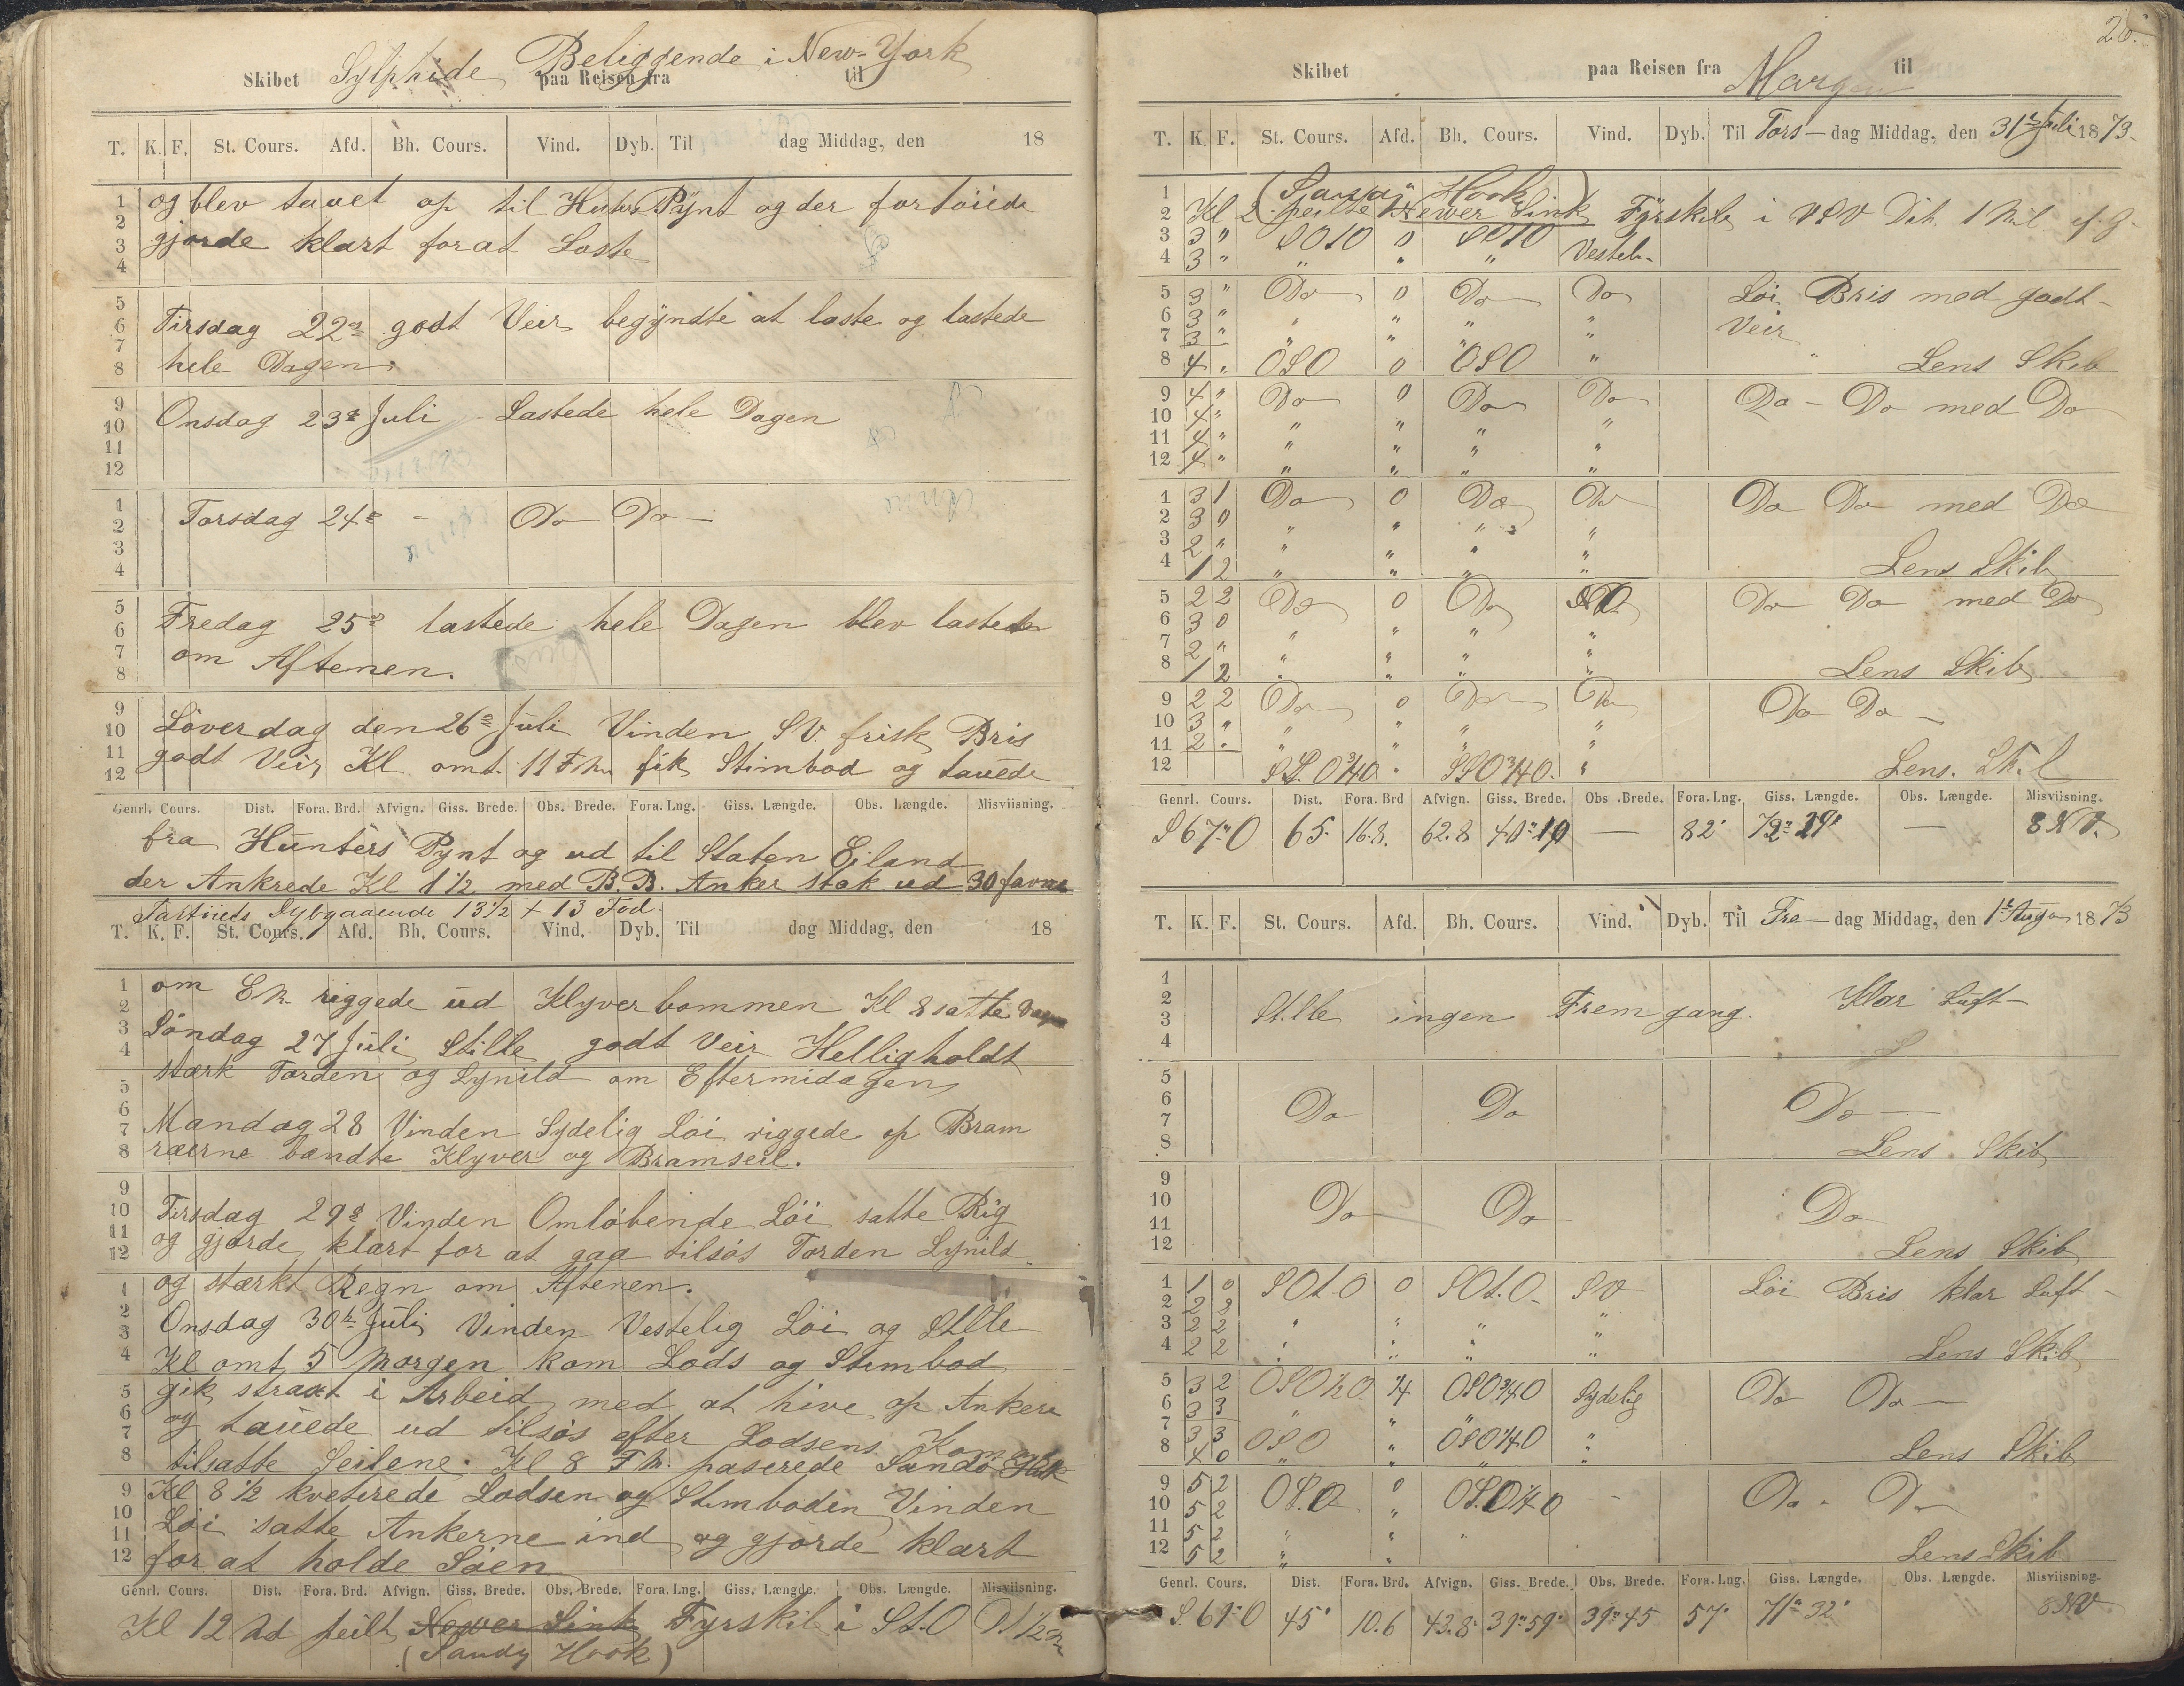 Skibet Sylphide Beliggende i New-York paa Reisen fra til
T. K. F. St. Cours. Afd. Bh. Cours. Vind. Dyb. Til dag Middag, den 18
og blev tauet op til Hunters Pÿnt og der fortöiede
gjorde klart forat Laste
Tirsdag 22de godt Veir begÿndte at laste og lastede
hele Dagen.
Onsdag 23de Juli Lastede hele Dagen
Torsdag 24de - Do Do
Fredag 25de lastede hele Dagen blev lastede
om Aftenen.
Löverdag den 26de Juli Vinden SV. frisk Bris
godt Veir Kl. omt. 11 Fm fik Stimbod og tauede
Genrl. Cours. Dist. Fora. Brd. Afvign. Giss. Brede. Obs. Brede. Fora. Lng. Giss. Længde. Obs. Længde. Misviisning.
fra Hunters Pynt og ud til Staten Eiland
der Ankrede Kl 1½ med B.B. Anker stak ud 30 favne
Fartöiets Dybgaaende 13½ + 13 Fod
T. K. F. St. Cours. Afd. Bh. Cours. Vind. Dyb. Til dag Middag, den 18
om Em riggede ud Klyverbommen Kl 8 satte
Söndag 27 Juli Stille godt Veir Helligholdt
stærk Torden og Lynild om Eftermidagen
Mandag 28 Vinden Sydelig Löi riggede op Bram
ræerne bændte Klyver og Bramseil.
Tirsdag 29de Vinden Omlöbende Löi satte Rig
og gjorde klart for at gaa tilsös Torden Lynild
og stærkt Regn om Aftenen.
Onsdag 30te Juli Vinden Vestelig Löi og Stille
Kl omt 5 Morgen kom Lods og Stimbod
gik straxt i Arbeid med at hive op Ankere
og tauede ud tilsös efter Lodsens
tilsatte Seilene. Kl 8 Fm. paserede Sandö Huk
Kl 8½ kveterede Lodsen og Stimboden Vinden
Löi satte Ankerne ind og gjorde klart
for at holde Söen
Genrl. Cours. Dist. Fora. Brd. Afvign. Giss. Brede. Obs. Brede. Fora. Lng. Giss. Længde. Obs. Længde. Misviisning.
Kl 12 Md peilt Newer Sink Fyrskib i St.O
(Sandy Hook)
Skibet paa Reisen fra til
T. K. F. St. Cours. Afd. Bh. Cours. Vind. Dyb. Til Tors-dag Middag, den 31te Juli 1873.
( Hook)
Kl 2 peilte Newer Sink Fÿrskib i VSV Dit. 1 Mil
3 3 " SO10 0 SO10
4 3 " " " " Vestel.
5 3 " Do 0 Do Do Löi Bris med godt
6 3 " " " " " Veir
7 3 " " " "
8 4 " OSO 0 OSO " Lens Skib
9 4 " Do 0 Do Do Do - Do med Do
10 4 " " " " "
11 4 " " " " "
12 4 " " " " "
1 3 1 Do 0 Do Do Do Do med Do
2 3 0 " " "
3 2 " " " " "
4 1 2 " " " " Lens Skib
5 2 2 Do 0 Do Do Do med Do
6 3 0 " " " "
7 2 " " " " "
8 1 2 " " " " Lens Skib
9 2 2 Do 0 Do Do Do Do -
10 3 " " " " "
11 2 " " " " "
12 SS.O¾O " SSO¾O. " Lens. Skib
Genrl. Cours. Dist. Fora. Brd Afvign. Giss. Brede. Obs. Brede. Fora. Lng. Giss. Længde. Obs. Længde. Misviisning.
S 67° O 65. 16.8. 62.8 40°19 — 82' 72° 29' — 8 NV.
T. K. F. St. Cours. Afd. Bh. Cours. Vind. Dyb. Til Fre-dag Middag, den 1te August 1873
Stille ingen Fremgang. Klar Luft-
Do Do Do
Lens Skib
Do Do Do
Lens Skib
1 1 0 SOt.O 0 SOt.O. SV Löi Bris klar Luft-
2 2 2 "
3 2 2 " " " "
4 2 2 " " " " Lens Skib
5 3 2 OSO½O ¼ OSO¾O Sydelig Do Do -
6 3 3 "
7 3 3 OSO " OSO¼O "
8 4 0 " " " " Lens Skib
9 5 2 OS.O 0 OS.O¼O - Do " Do
10 5 2 "
11 5 2 " " "
12 5 2 " " Lens Skib
Genrl. Cours. Dist. Fora. Brd. Afvign. Giss. Brede. Obs. Brede. Fora. Lng. Giss. Længde. Obs. Længde. Misviisning.
S. 69° O 45' 10.6 43.8 39°59' 39°45 57' 71° 32' 8 NV